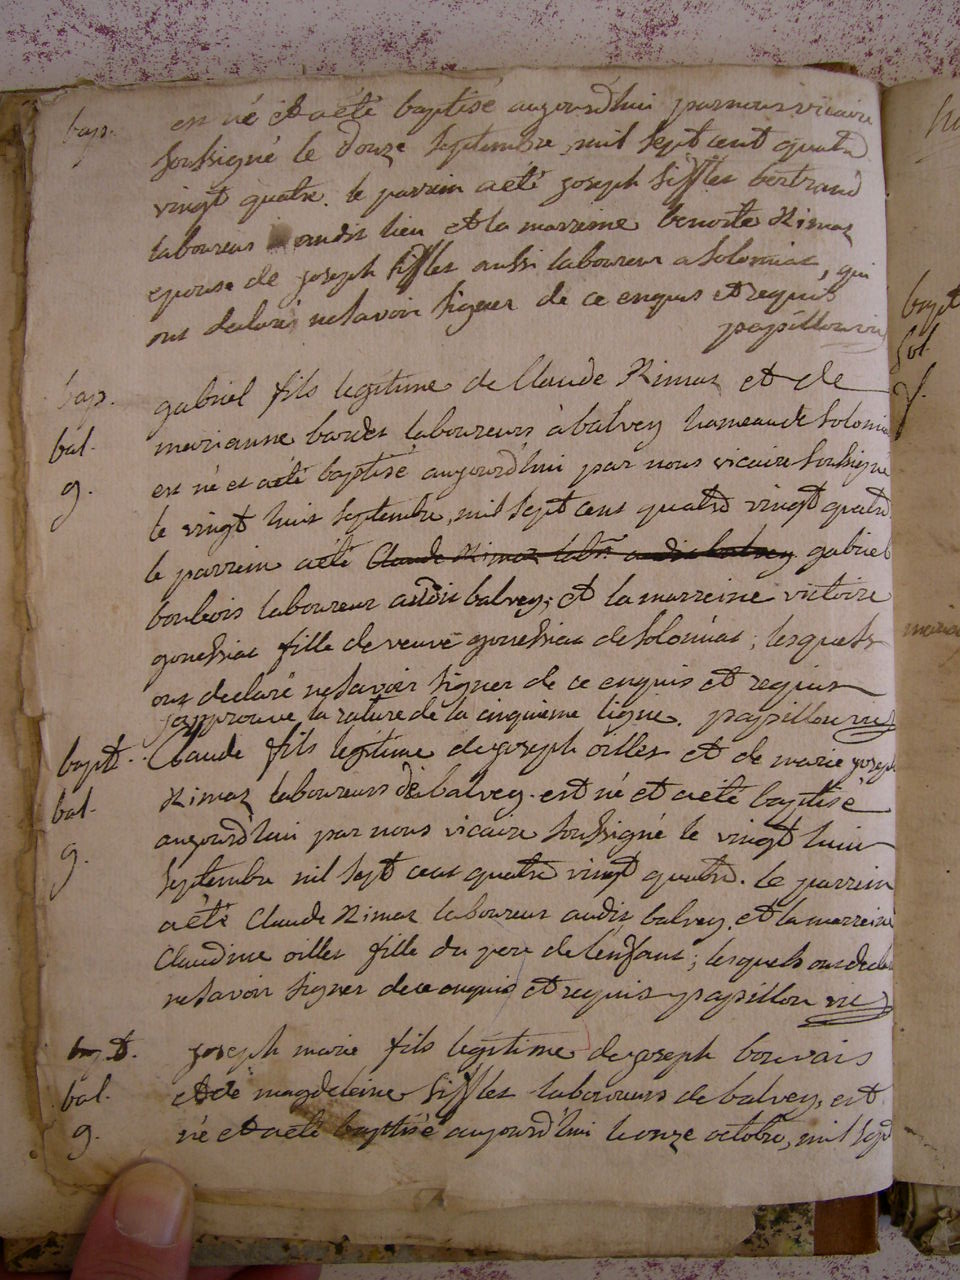 bap. est né et a eté baptisé aujourd'hui par nous vicaire
soussigné le douze septembre, mil sept cent quatre
vingt quatre. le parrein a eté joseph Sifflet bertrand
laboureur audit lieu et la marreine benoite Rimaz
epouse de joseph Sifflet aussi laboureur a Solomiat, qui
ont declaré ne savoir signer de ce enquis et requis
papillon vic
bap. gabriel fils legitime de Claude Rimaz et de
bal. marianne bardet laboureurs à balvey hameau de Solomia
g. est né et a eté baptisé aujourd'hui par nous vicaire soussigné
le vingt huit septembre, mil sept cent quatre vingt quatre
le parrein a eté Claude Rimaz labr audit balvey gabriel
laboureur audit balvey; et la marreine victoire
gonessiat fille de veuve gonessiat de Solomiat; lesquels
ont declaré ne savoir signer de ce enquis et requis
japprouve la rature de la cinquieme ligne. papillon vic
bapt. Claude fils legitime de joseph oillet et de marie joseph
bal. Rimaz laboureurs de balvey. est né et a eté baptisé
g. aujourd'hui par nous vicaire soussigné le vingt huit
septembre mil sept cent quatre vingt quatre. le parrein
a eté Claude Rimaz laboureur audit balvey, et la marreine
Claudine oillet fille du pere de l'enfant; lesquels ont decla
ne savoir signer de ce enquis et requis papillon vic
bapt. joseph marie fils legitime de joseph bouvais
bal. et de magdeleine Sifflet laboureurs de balvey, est
g. né et a eté baptisé aujourd'hui le onze octobre, mil sept
bapt
Sol.